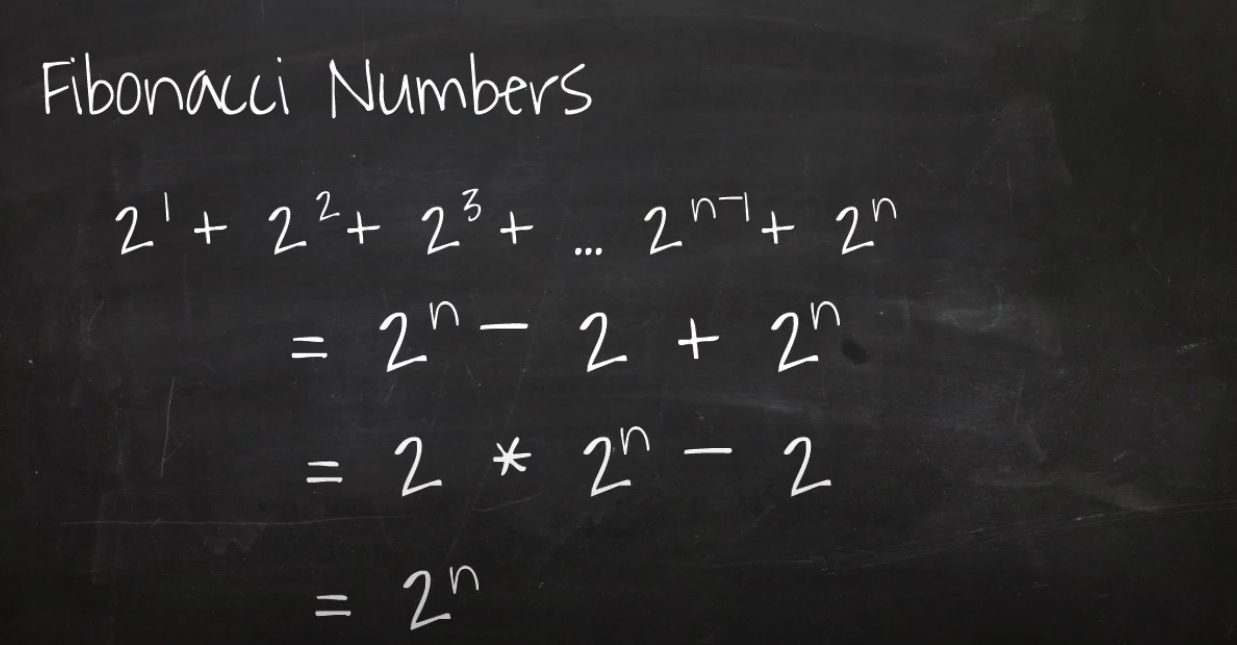 Fibonacci Numbers
2¹ + 2² + 2³ + ... 2ⁿ⁻¹ + 2ⁿ
= 2ⁿ - 2 + 2ⁿ
= 2 * 2ⁿ - 2
= 2ⁿ